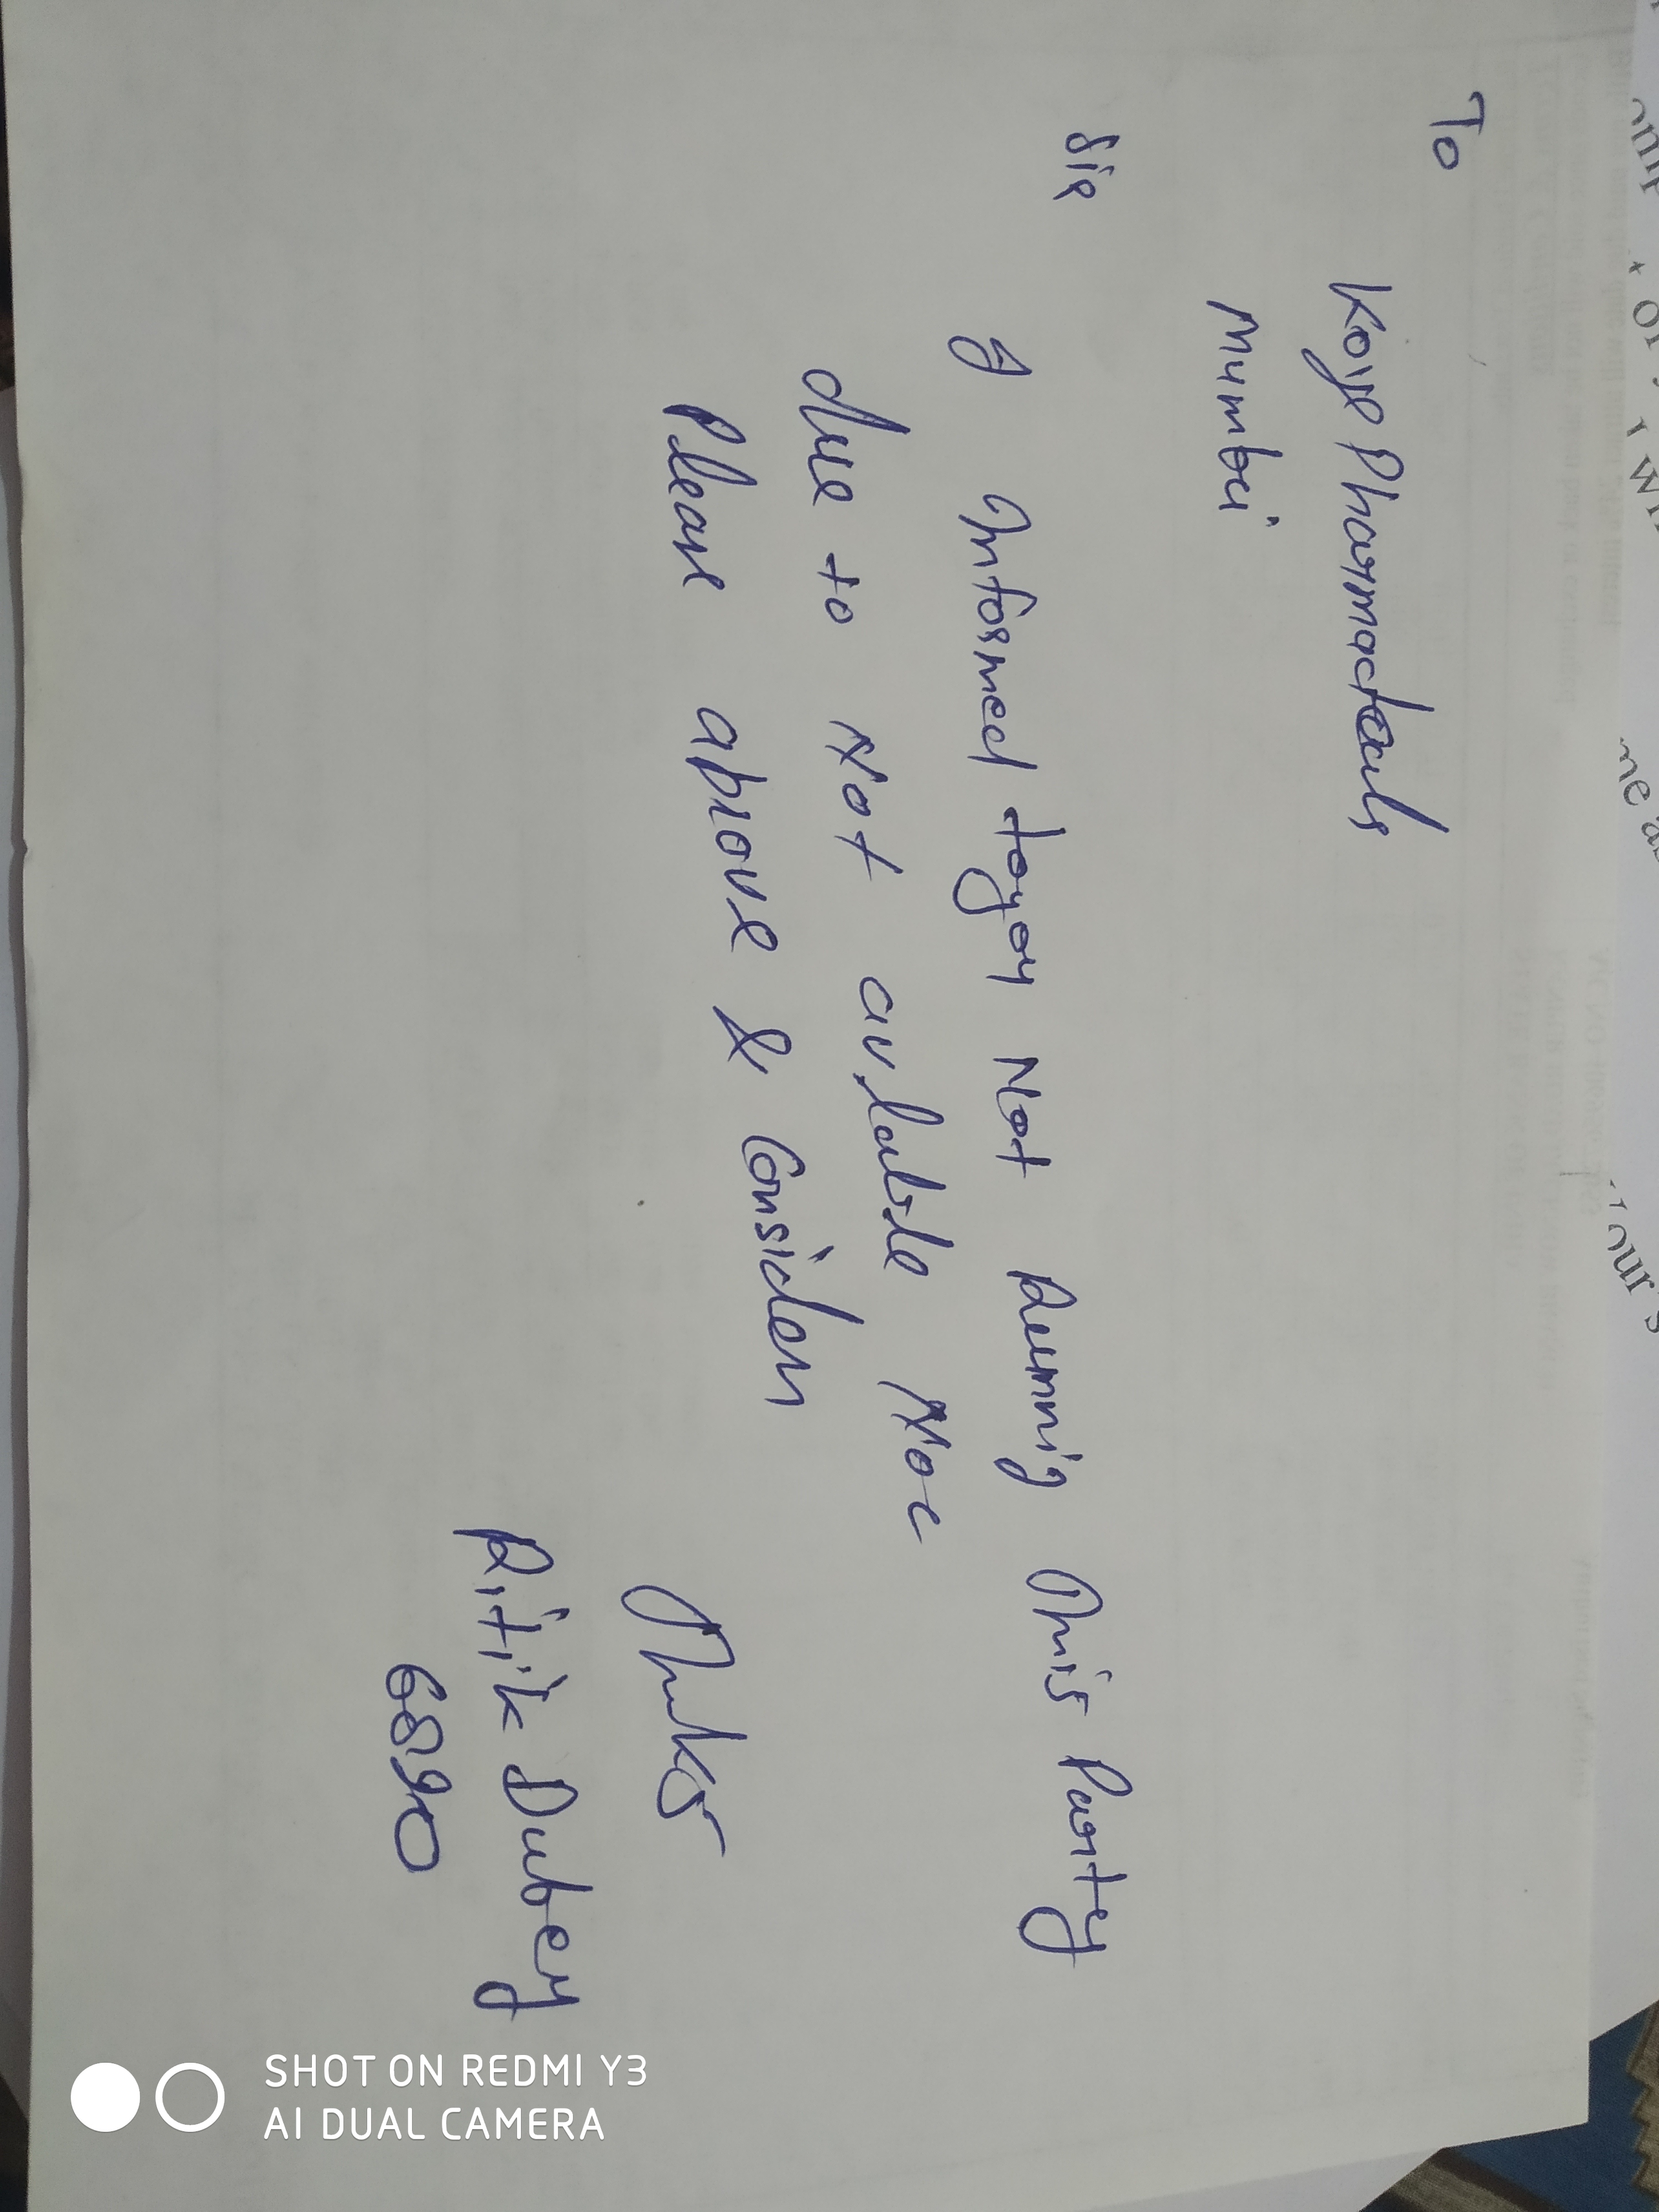 To
Koye Pharmacteculs
Mumbai
Sir
I Informed toyou Not Running This Party
due to Not avlable Noc
Please abrove & Consider
Thnks
Ritik Dubey
6890
SHOT ON REDMI Y3
AI DUAL CAMERA